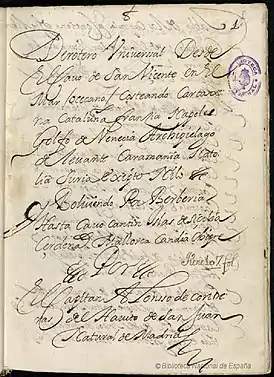 8
1
Derotero Universal Desde
El Cavo de San Vicente en El
Mar occeano / Costeando Cartaxe
na Cataluña Francia Napoles
Golfo de Venecia Archipielago
de Levante Caramania Nato
lia Suria Exipto Nilo
y Volviendo Por Berberia
Hasta Cavo Cantin Islas de
Cerdeña Mallorca Candia Chipre
Por
El Capitan Alonso de contre
ras del Havito de San Juan
Natural de Madrid
© Biblioteca Nacional de España